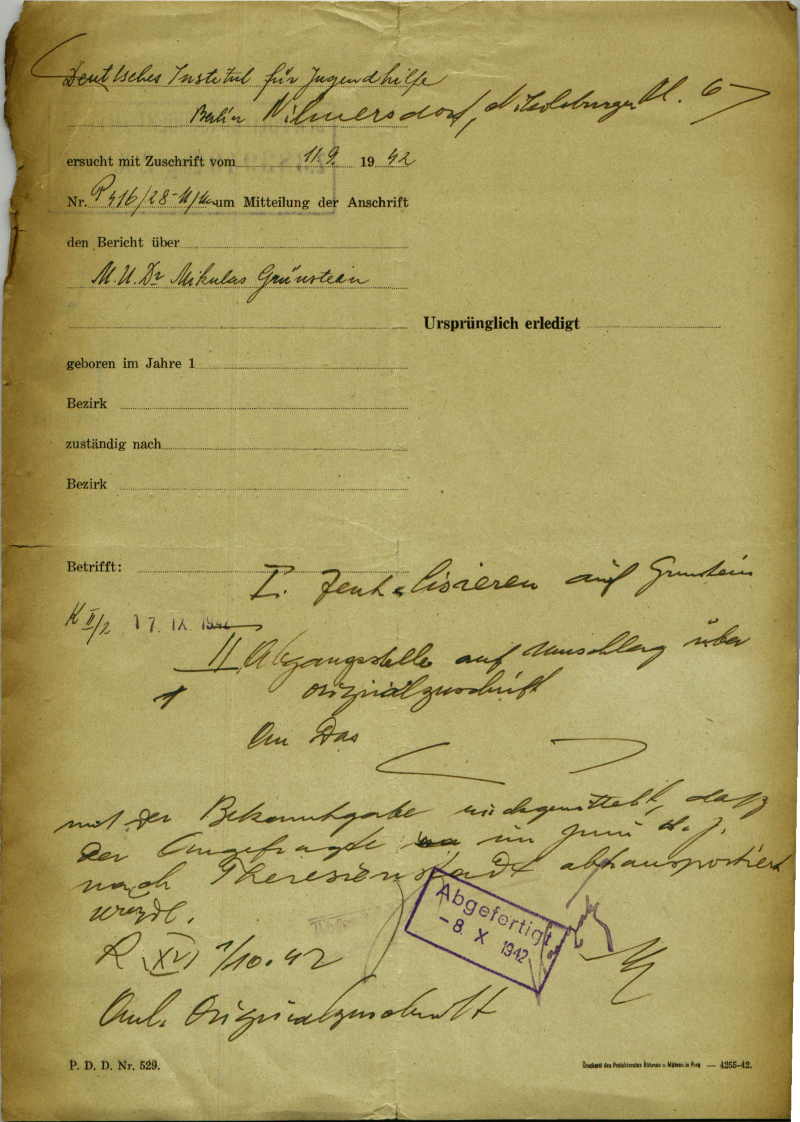 Deutsches Institut für Jugendhilfe
Berlin Wilmersdorf, Nikolsburger Pl. 6
ersucht mit Zuschrift vom 11.9. 1942
Nr. P 416/28 um Mitteilung der Anschrift
den Bericht über
M.U.Dr Mikulas Grünstein
Ursprünglich erledigt
geboren im Jahre 1
Bezirk
zuständig nach
Bezirk
Betrifft:
I. auf Grunstein
K II/2 17. IX. 1942
II Abgangsstelle auf Umschlag über
Originalzuschrift
An Das
mit der Bekanntgabe rückgemittelt, daß
der Angefragte im Juni d. J.
nach Theresienstadt abtransportiert
wurde.
Abgefertigt
- 8. X 1942
R XVI 7/10.42
Anl. Originalzuschrift
P. D. D. Nr. 529.
Druckerei des Protektorates Böhmen u. Mähren in Prag — 4255-42.